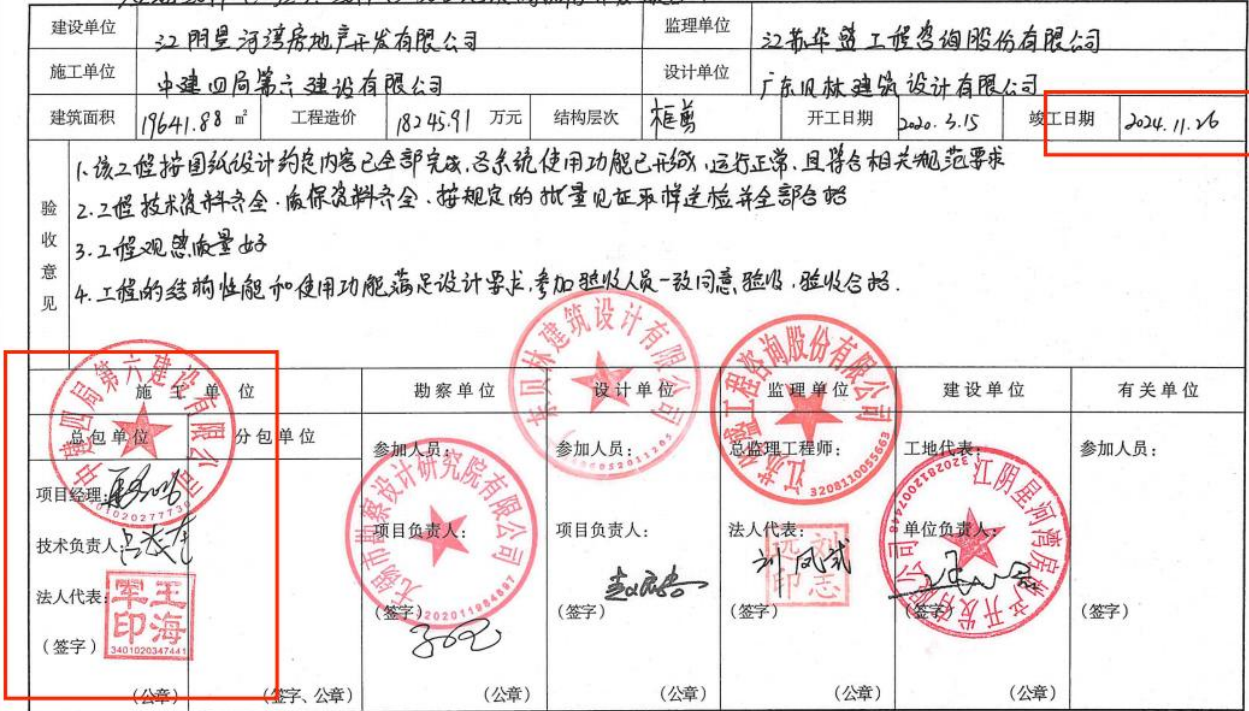 建设单位 江阴星河湾房地产开发有限公司 监理单位 江苏华盛工程咨询股份有限公司
施工单位 中建四局第六建设有限公司 设计单位 广东贝林建筑设计有限公司
建筑面积 19641.88 ㎡ 工程造价 18245.91 万元 结构层次 框剪 开工日期 2020.3.15 竣工日期 2024.11.26
验收意见
1.该工程按图纸设计约定内容已全部完成,各系统使用功能已形成,运行正常,且符合相关规范要求
2.工程技术资料齐全、质保资料齐全、按规定的批量见证取样送检并全部合格
3.工程观感质量好
4.工程的结构性能和使用功能满足设计要求,参加验收人员一致同意验收,验收合格.
施工单位 勘察单位 设计单位 监理单位 建设单位 有关单位
总包单位 分包单位 参加人员: 参加人员: 总监理工程师: 工地代表: 参加人员:
项目经理:
技术负责人: 项目负责人: 项目负责人: 法人代表: 单位负责人:
法人代表:
(签字) (签字) (签字) (签字) (签字) (签字)
(公章) (签字、公章) (公章) (公章) (公章) (公章)
中建四局第六建设有限公司
王海军印
3401020347441
无锡市勘察设计研究院有限公司
贝林建筑设计有限公司
工程咨询股份有限公司
3208110055663
刘志远印
江阴星河湾房地产开发有限公司